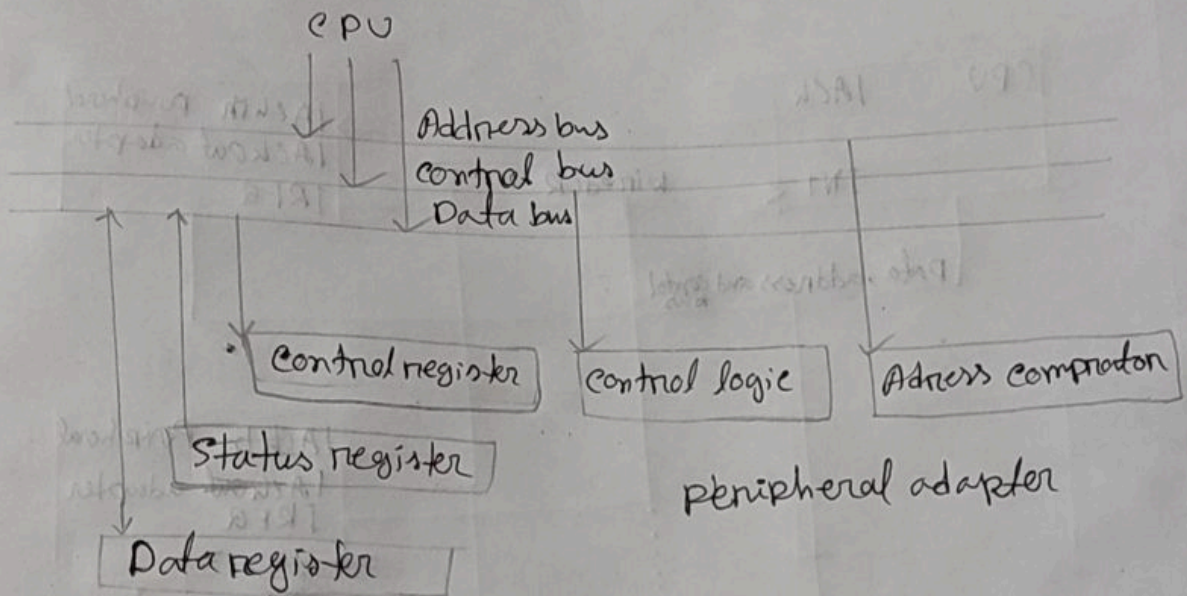 CPU
Address bus
control bus
Data bus
Control register
control logic
Adress compraton
Status register
peripheral adapter
Data register